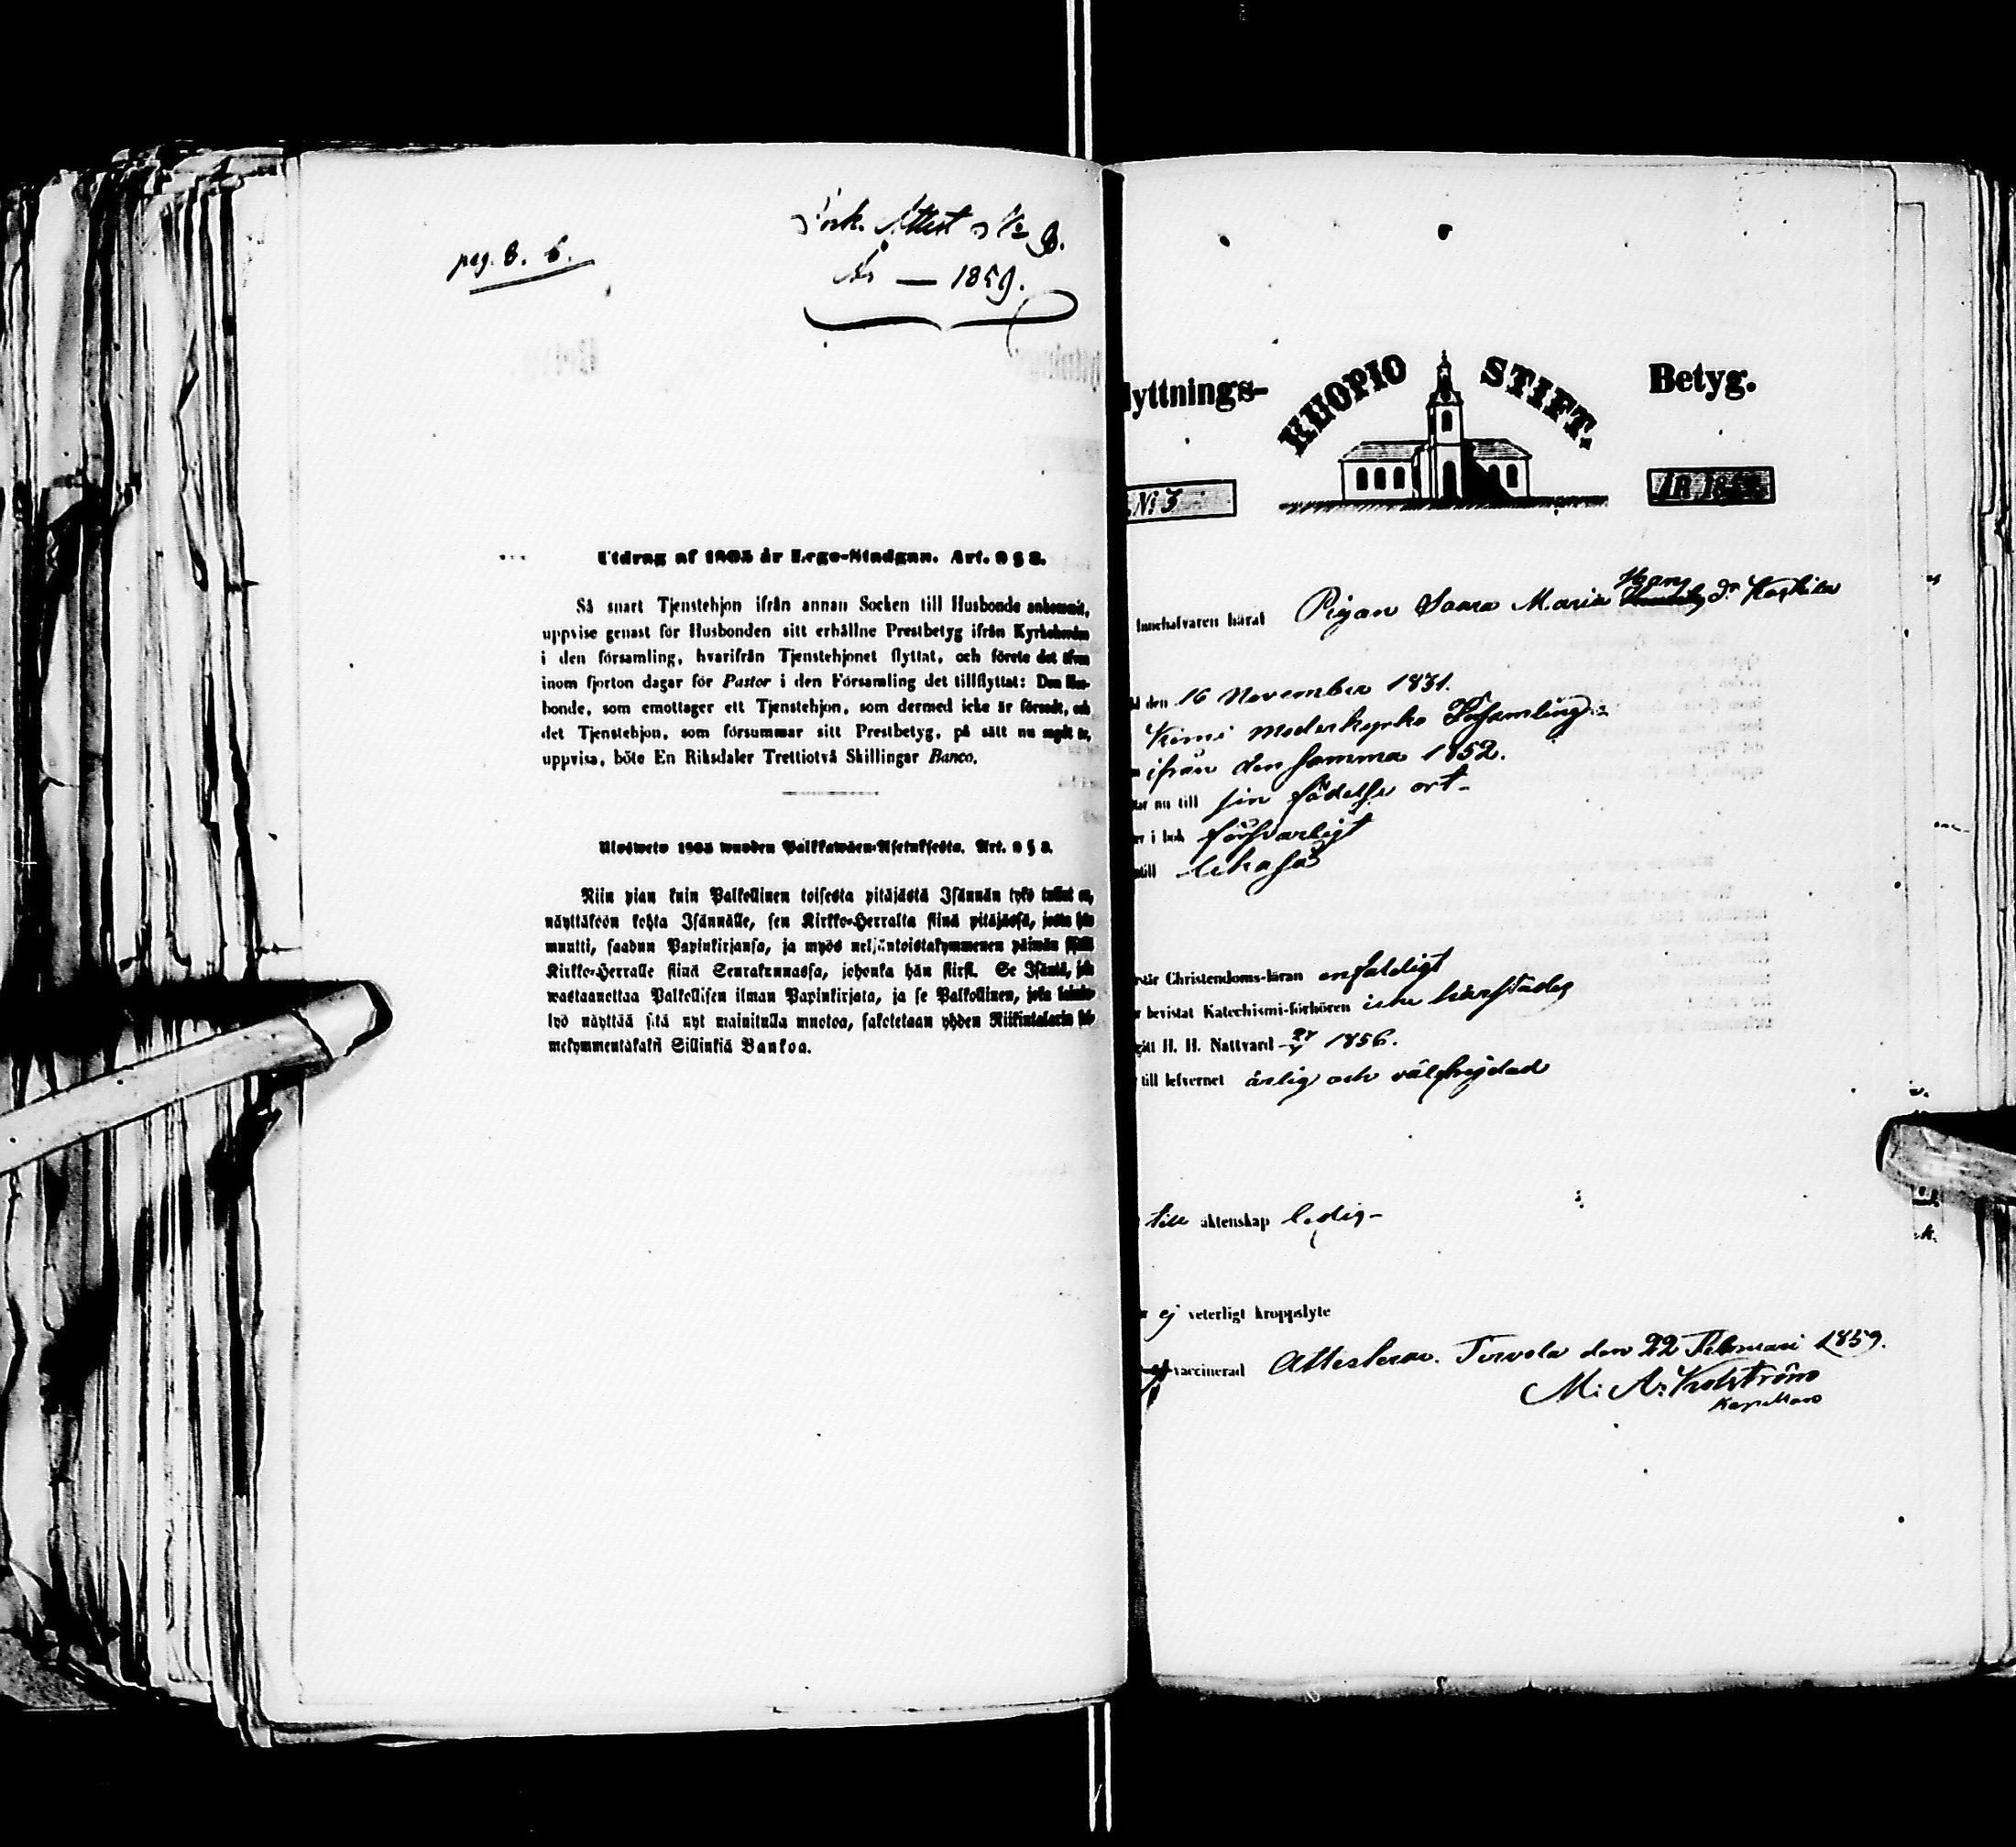 pag. 8. 6.
Ink. Attest No 9.
År — 1859.
Utdrag af 1805 år Lego-Stadgan. Art. 9 § 3.
Så snart Tjenstehjon ifrån annan Socken till Husbonde ankommit,
uppvise genast för Husbonden sitt erhållne Prestbetyg ifrån Kyrkoherden
i den församling, hvarifrån Tjenstehjonet flyttat, och förete det äfven
inom fjorton dagar för Pastor i den Församling det tillflyttat: Den Hus-
bonde, som emottager ett Tjenstehjon, som dermed icke är försedt, och
det Tjenstehjon, som försummar sitt Prestbetyg, på sätt nu sagdt är,
uppvisa, böte En Riksdaler Trettiotvå Skillingar Banco.
Ulosweto 1805 wuoden Palkkawäen-Asetuksesta. Art. 9 § 3.
Niin pian kuin Palkollinen toisesta pitäjästä Isännän tykö tullut on,
näyttäköön kohta Isännälle, sen Kirkko-Herralta siinä pitäjässä, josta hän
muutti, saadun Papinkirjansa, ja myös neljäntoistakymmenen päiwän sisällä
Kirkko-Herralle siinä Seurakunnassa, johonka hän siirsi. Se Isäntä, joka
wastaanottaa Palkollisen ilman Papinkirjata, ja se Palkollinen, joka laimin-
lyö näyttää sitä nyt mainitulla muotoa, sakotetaan yhden Riikintalarin kol-
mekymmentäkaksi Sillinkiä Bankoa.
lyttnings- KUOPIO STIFT. Betyg.
No 3 ÅR 185
Innehafvaren häraf Pigan Saara Maria Hans Dr Koskila
den 16 November 1831.
Kemi moderkyrko Församling
ifrån den samma 1852.
nu till sin födelse ort-
i bok försvarligt
till lekaså
Christendoms-läran enfaldigt
bevistat Katechismi-förhören icke härstädes
H. H. Nattvard 1856.
till lefvernet ärlig och välfrejdad
till äktenskap ledig-
ej veterligt kroppslyte
vaccinerad Attesterar. Tervola den 22 Februari 1859.
M: A: Kolström
Kapellan